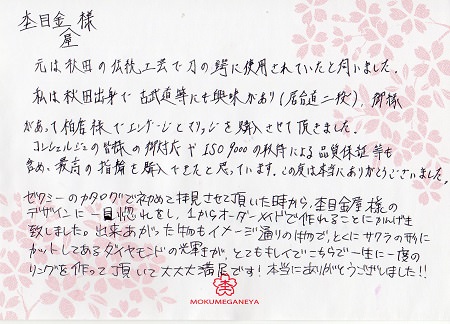 杢目金屋様
元は秋田の伝統工芸で刀の鍔に使用されていたと伺いました。
私は秋田出身で古武道等にも興味があり(居合道二段)、御縁
があって柏店様でエンゲージとマリッジを購入させて頂きました。
コンシェルジュの皆様の御対応やISO9000の取得による品質保証等も
含め、最高の指輪を購入できたと思っています。この度は本当にありがとうございました。
ゼクシーのカタログで初めて拝見させて頂いた時から、杢目金屋様の
デザインに一目惚れをし、1からオーダーメイドで作れることにかんげき
致しました。出来あがった物もイメージ通りのもので、とくにサクラの形に
カットしてあるダイヤモンドの光輝が、とてもキレイでこちらで一生に一度の
リングを作って頂いて大大大満足です!本当にありがとうございました!!
MOKUMEGANEYA